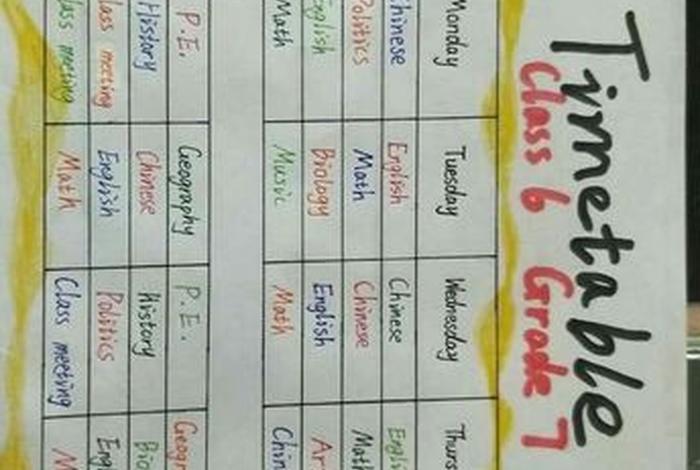 Timetable
Class 6 Grade 7
Monday Tuesday Wednesday Thurs
Chinese English Chinese Engli
Politics Math Chinese Math
English Biology English Ar
Math Music Math Chin
P.E. Geography P.E. Geogr
History Chinese History Bio
Class meeting English Politics Eng
Class meeting Math Class meeting M